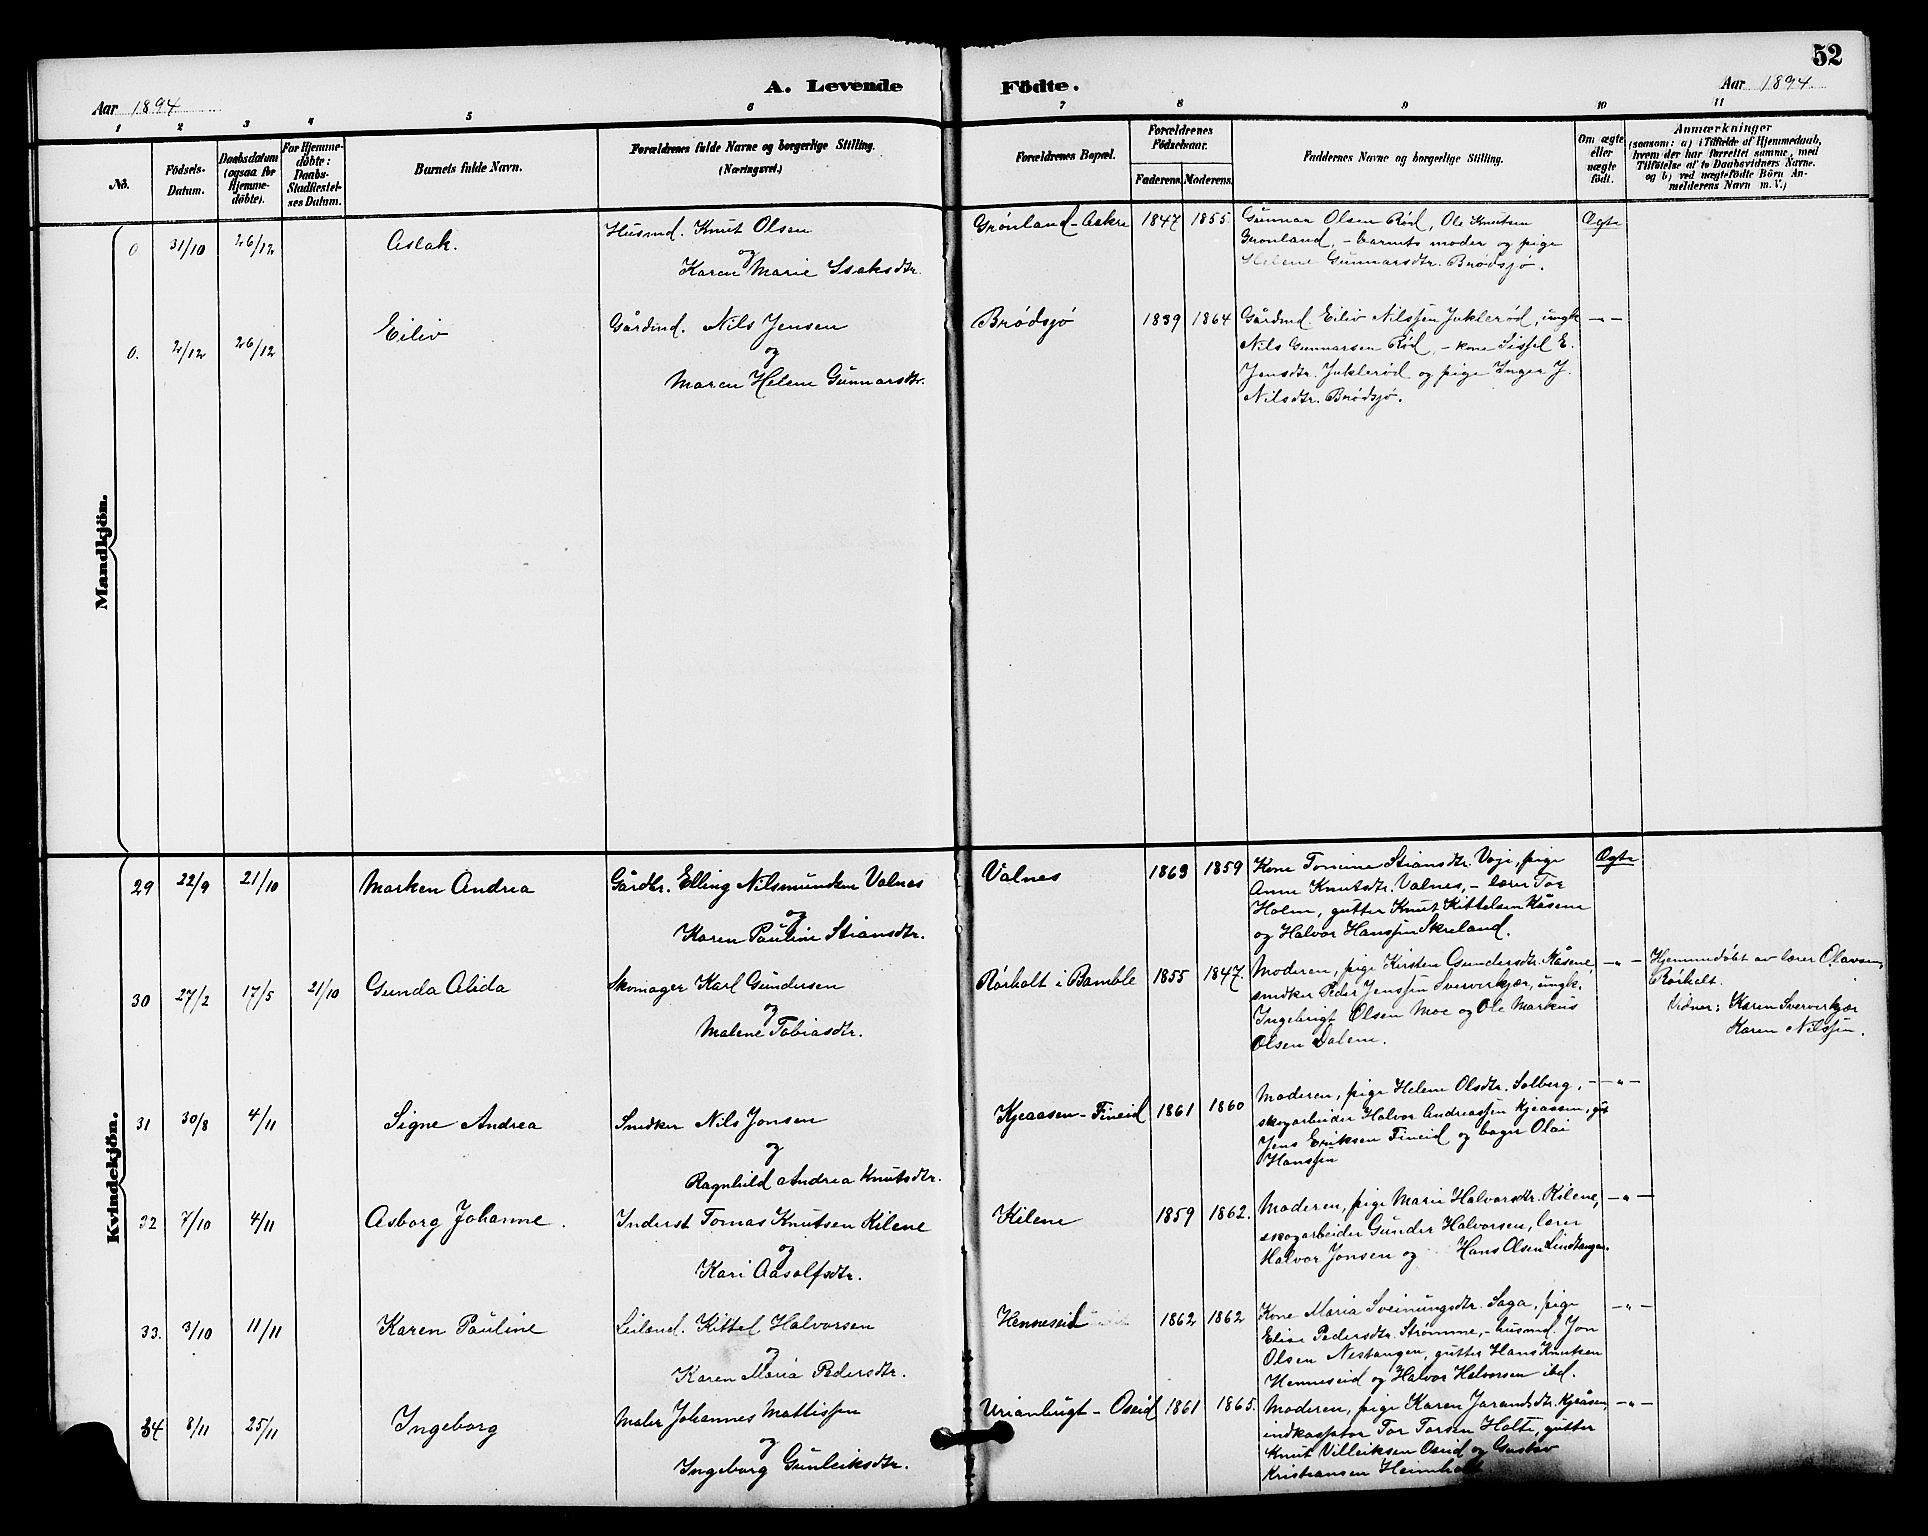 52
A. Levende Födte.
Aar 1894
Aar 1894.
1 2 3 4 5 6 7 8 9 10 11
No.
Födsels-Datum.
Daabsdatum (ogsaa for Hjemmedöbte).
For Hjemmedöbte: Daabs-Stadfæstelses Datum.
Barnets fulde Navn.
Forældrenes fulde Navne og borgerlige Stilling. (Næringsvei.)
Forældrenes Bopæl.
Forældrenes Födselsaar.
Faderens. Moderens.
Faddernes Navne og borgerlige Stilling.
Om ægte eller uægte födt.
Anmærkninger
(saasom: a) i Tilfælde af Hjemmedaab, hvem der har forrettet samme, med Tilföielse af to Daabsvidners Navne. og b) ved uægtefödte Börn Anmelderens Navn m. V.)
Mandkjön.
0 31/10 26/12 Aslak. Husmd. Knut Olsen
og
Karen Marie Isaksdtr.
Grønland-Aakre 1847 1855. Gunnar Olsen Rød, Ole Knutsen
Grønland, - barnets moder og pige
Helene Gunnarsdtr. Brødsjø.
Ægte
0. 2/12 26/12 Eiliv Gårdmd. Nils Jensen
og
Maren Helene Gunnarsdtr.
Brødsjø 1839 1864 Gårdmd. Eiliv Nilssen Juklerød, ungk.
Nils Gunnarsen Rød, - kone Sissel E.
Jensdtr. Juklerød og pige Inger J.
Nilsdtr. Brødsjø.
-"-
Kvindekjön.
29 22/9 21/10 Marken Andrea Gårdbr. Elling Nilsmunden Valnes
og
Karen Pauline Stiansdtr.
Valnes 1863 1859 Kone Tomine Stiansdtr. Voje, pige
Anne Knutsdtr. Valnes, - lærer Tor
Holm, gutter Knut Kittelsen Kåsene
og Halvor Hanssen Skreland.
Ægte
30 27/2 17/5 21/10 Gunda Alida Skomager Karl Gundersen
og
Malene Tobiasdtr.
Rørholt i Bamble 1855 1847. Moderen, pige Kirsten Gundersdtr. Kåsene,
snedker Peder Jenssen Sververkjær, ungk.
Ingebrigt Olsen Moe og Ole Markus
Olsen Dalene.
-"-
Hjemmedøbt av lærer Olavsen,
Rørholt.
Vidner: Karen Sververkjær
Karen Nilssen.
31 30/8 4/11 Signe Andrea Snedker Nils Jonsen
og
Ragnhild Andrea Knutsdtr.
Kjeaasen-Fineid 1861 1860 Moderen, pige Helene Olsdtr. Solberg, -
skogarbeider Halvor Andreassen Kjeaasen, gut
Jens Eriksen Fineid og bager Olai
Hanssen
-"-
32 7/10 4/11 Asborg Johanne. Inderst Tomas Knutsen Kilene
og
Kari Aasolfsdtr.
Kilene 1859 1862. Moderen, pige Marie Halvorsdtr. Kilene,
skogarbeider Gunder Halvorsen, lærer
Halvor Jonsen og Hans Olsen Lindtangen.
-"-
33. 3/10 11/11 Karen Pauline Leiland. Kittel Halvorsen
og
Karen Maria Pedersdtr.
Henneseid 1862 1862 Kone Maria Sveinungsdtr. Saga, pige
Elise Pedersdtr. Strømme, - husmd. Jon
Olsen Nestangen, gutter Hans Knutsen
Henneseid og Halvor Halvorsen ibd.
-"-
34 8/11 25/11 Ingeborg Maler Johannes Mattissen
og
Ingeborg Gunleiksdtr.
Urianbugt - Oseid 1861 1865. Moderen, pige Karen Jorandsdtr. Kjeåsen,
indkassator Tor Torsen Holte, gutter
Knut Villeiksen Oseid og Gustav
Kristiansen Heimholt
-"-